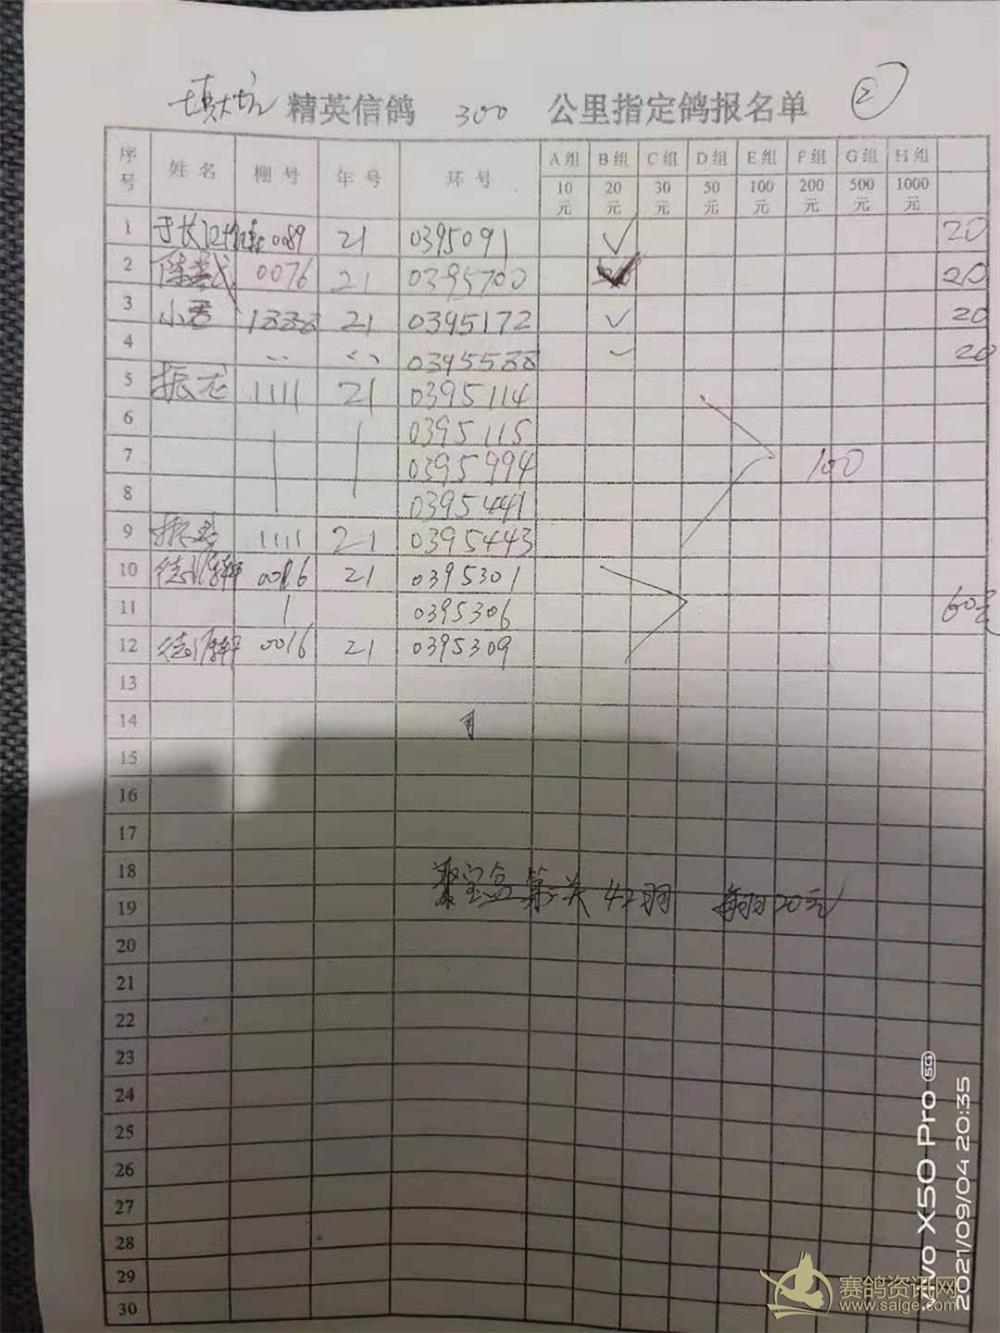 填大坑 精英信鸽 300 公里指定鸽报名单 ②
序号 姓名 棚号 年号 环号 A组 B组 C组 D组 E组 F组 G组 H组
10元 20元 30元 50元 100元 200元 500元 1000元
1 于长江 0089 21 0395091 ✓ 20
2 陈 0076 21 0395700 ✓ 20
3 小君 1888 21 0395172 ✓ 20
4 0395588 20
5 振龙 1111 21 0395114
6 0395115
7 0395994 100
8 0395441
9 振龙 1111 21 0395443
10 德源轩 0016 21 0395301
11 0395306 60元
12 德源轩 0016 21 0395309
13
14
15
16
17
18
聚宝盆 第二关 42羽 每羽20元
19
20
21
22
23
24
25
26
27
28
29
30
vivo X50 Pro 5G
2021/09/04 20:35
赛鸽资讯网
www.saige.com